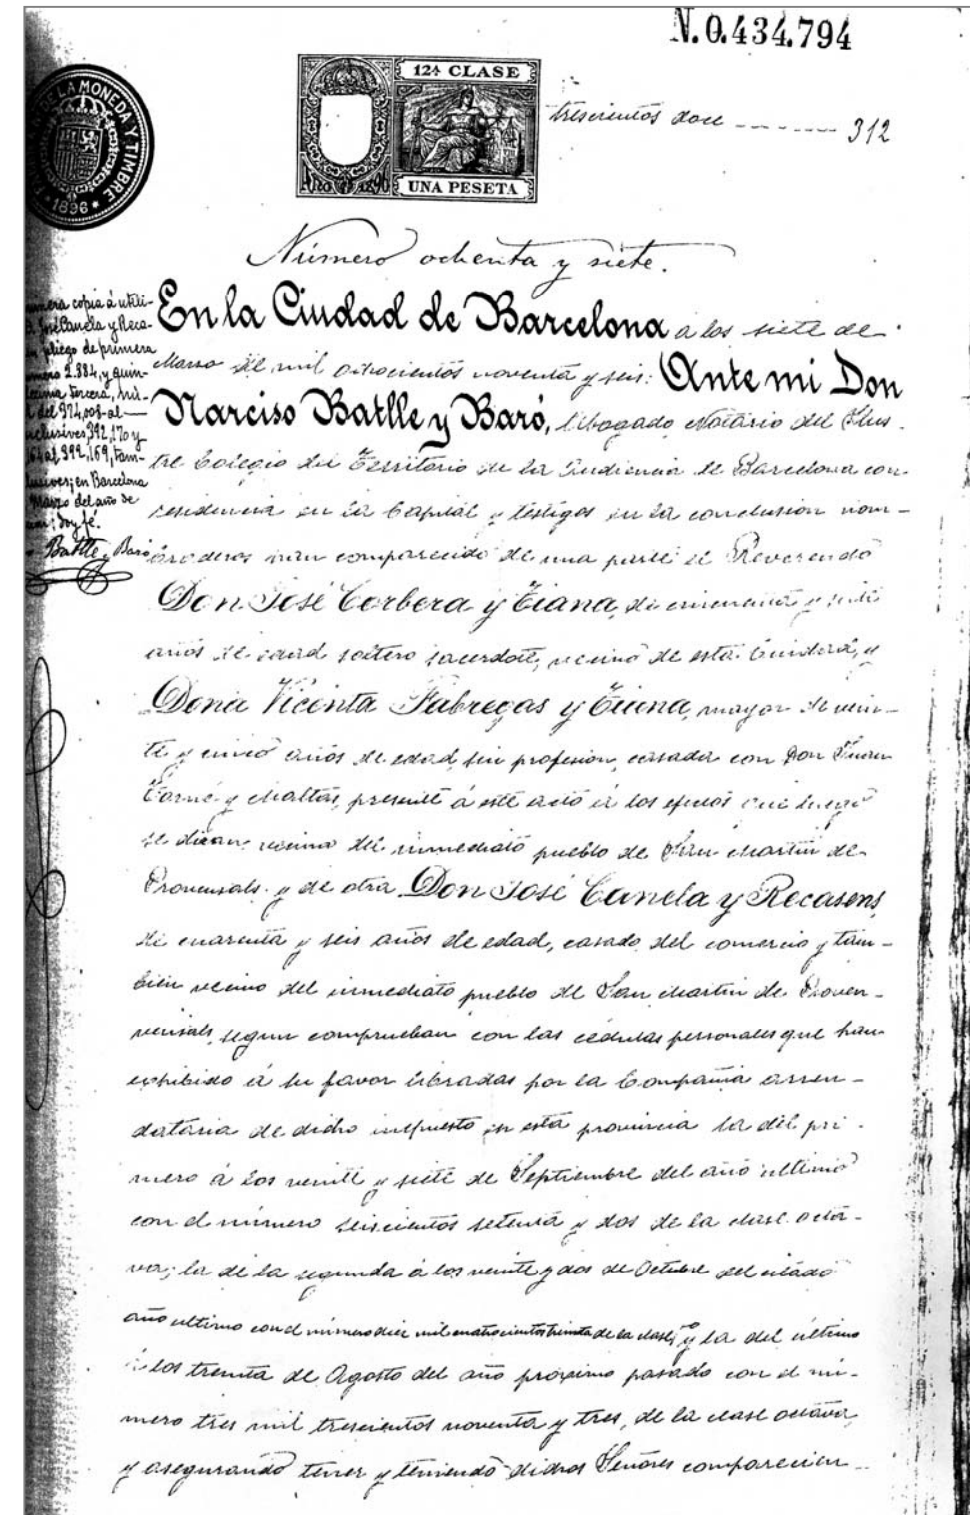 N. 0.434.794
12ª CLASE
UNA PESETA
Año 1896
DE LA MONEDA Y TIMBRE
* 1896 *
trescientos doce - - - - - - - 312
Número ochenta y siete.
primera copia á utili-
José Canela y Reca-
pliego de primera
2.884, y quin-
tercera, nú-
del 374,008 al
inclusives, 392,170 y
al 392,169, tam-
en Barcelona
Marzo del año de
doy fé.
Batlle y Baró
En la Ciudad de Barcelona a los siete de
Marzo de mil ochocientos noventa y seis: Ante mi Don
Narciso Batlle y Baró, Abogado, Notario del Ilus-
tre Colegio del Territorio de la Audiencia de Barcelona con
residencia en la Capital y testigos en la conclusion nom-
braderos han comparecido de una parte el Reverendo
Don José Corbera y Tiana, de cincuenta y siete
años de edad soltero sacerdote, vecino de esta Ciudad, y
Doña Vicenta Fabregas y Tiana, mayor de vein-
te y cinco años de edad, sin profesion, casada con Don Juan
Carné y Maltas, presente á este acto á los efectos que luego
se diran vecina del inmediato pueblo de San Martin de
Provensals. y de otra Don José Canela y Recasens,
de cuarenta y seis años de edad, casado, del comercio y tam-
bien vecino del inmediato pueblo de San Martin de Proven-
vensals, segun comprueban con las cédulas personales que han
exhibido á su favor libradas por la Compañia arren-
dataria de dicho impuesto en esta provincia la del pri-
mero á los veinte y siete de Septiembre del año ultimo
con el número seiscientos setenta y dos de la clase octa-
va; la de la segunda á los veinte y dos de Octubre del citado
año ultimo con el número diez mil cuatrocientos treinta de la clase y la del ultimo
á los treinta de Agosto del año proximo pasado con el nú-
mero tres mil trescientos noventa y tres, de la clase octava,
y asegurando tener y teniendo dichos Señores comparecien-